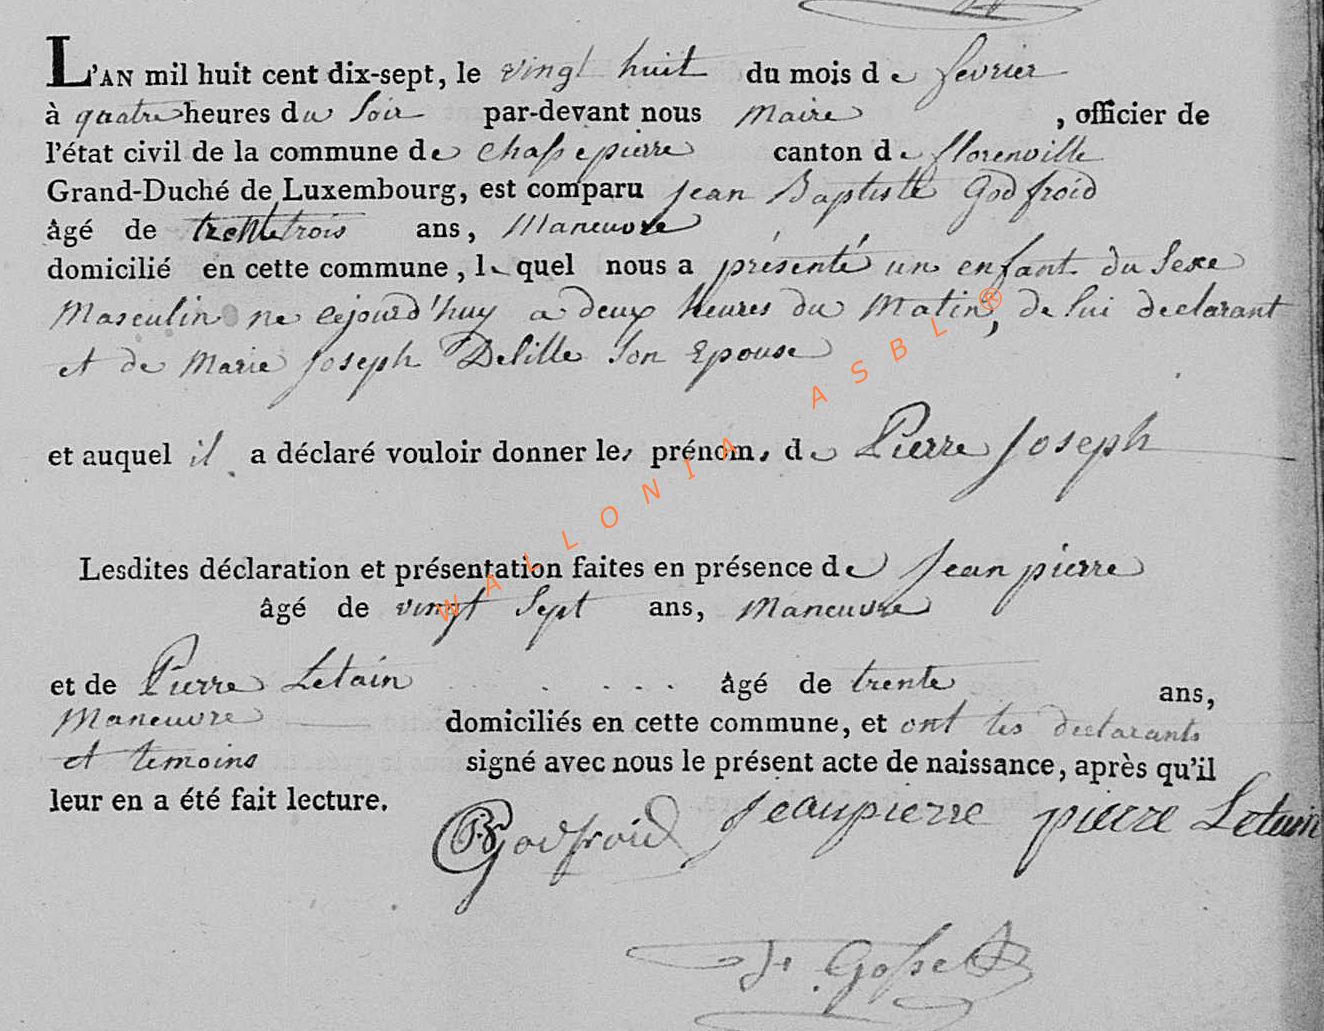 L'AN mil huit cent dix-sept, le vingt huit du mois de fevrier
à quatre heures du Soir par-devant nous Maire , officier de
l'état civil de la commune de Chassepierre canton de florenville
Grand-Duché de Luxembourg, est comparu Jean Baptiste Godfroid
âgé de trente trois ans, Maneuvre
domicilié en cette commune, le quel nous a présenté un enfant du Sexe
Masculin né cejourd'huy a deux heures du Matin, de lui declarant
et de Marie Joseph Delille Son Epouse
et auquel il a déclaré vouloir donner les prénoms de Pierre Joseph
Lesdites déclaration et présentation faites en présence de Jean pierre
âgé de vingt Sept ans, Maneuvre
et de Pierre Letain . . . . . âgé de trente ans,
Maneuvre domiciliés en cette commune, et ont les declarants
et temoins signé avec nous le présent acte de naissance, après qu'il
leur en a été fait lecture.
JB Godfroid Jeanpierre pierre Letain
Gosset
WALLONIA ASBL ®